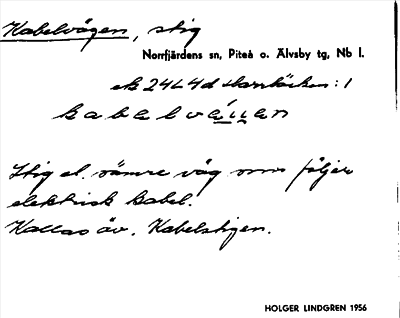 Kabelvägen, stig
Norrfjärdens sn, Piteå o. Älvsby tg, Nb l.
ek 24L4d :1
kabelvä
Stig el. sämre väg som följer
elektrisk kabel.
Kallas äv. Kabelstigen.
HOLGER LINDGREN 1956